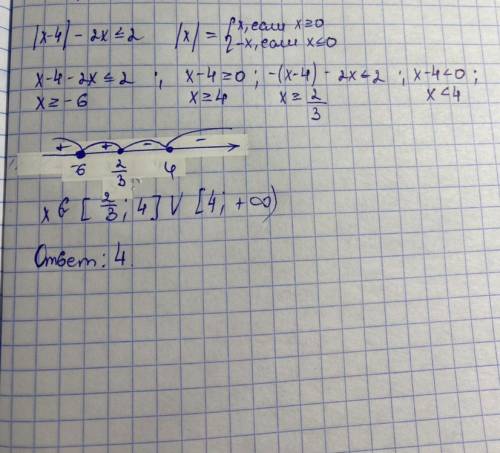 |x-4| - 2x ≤ 2 |x| = { x, если x ≥ 0
-x, если x ≤ 0
x-4-2x ≤ 2 ; x-4 ≥ 0 ; -(x-4) - 2x ≤ 2 ; x-4 < 0 ;
x ≥ -6 x ≥ 4 x ≥ 2/3 x < 4
+ + - -
-6 2/3 4
x ∈ [2/3; 4] V [4; +∞)
Ответ: 4.